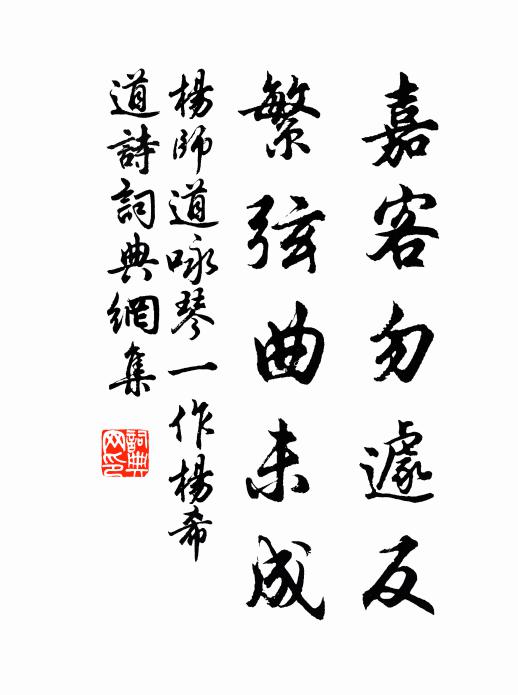 嘉客勿遽反
繁弦曲未成
楊師道咏琴一作楊希
道詩詞典網集
詞典
网印